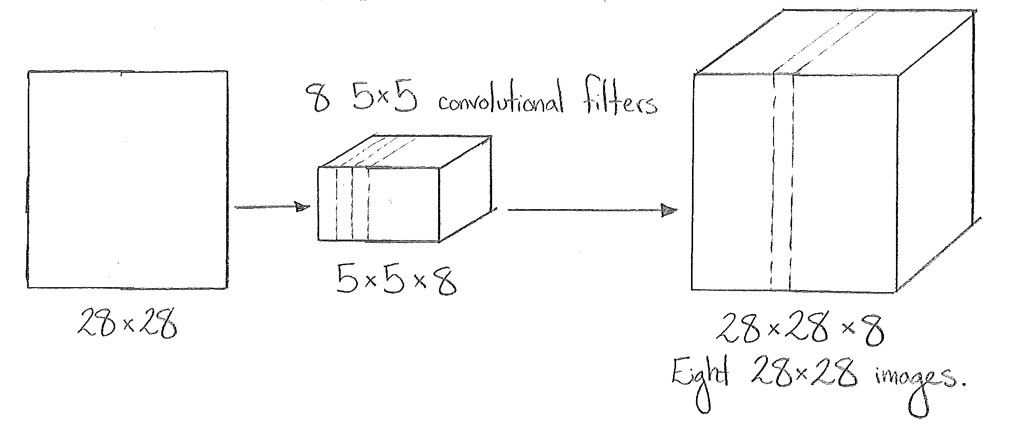 8 5×5 convolutional filters
28×28
5×5×8
28×28×8
Eight 28×28 images.